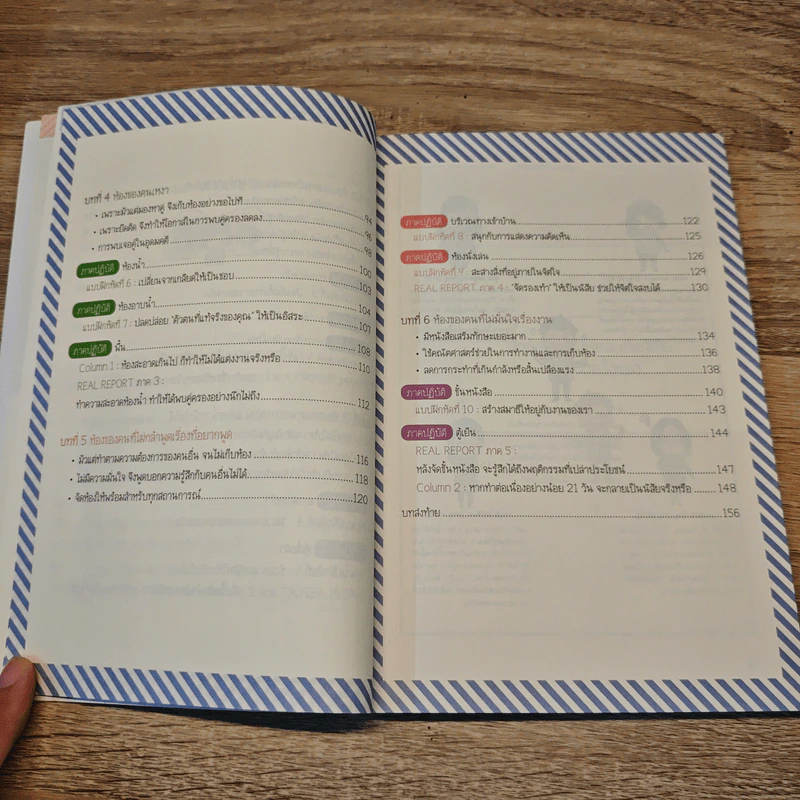 บทที่ 4 ห้องของคนเหงา
• เพราะมัวแต่มองหาคู่ จึงเก็บห้องอย่างขอไปที ... 94
• เพราะยึดติด จึงทำให้โอกาสในการพบคู่ครองลดลง ... 96
• การพบเจอคู่ในอุดมคติ ... 98
ภาคปฏิบัติ ห้องน้ำ ... 100
แบบฝึกหัดที่ 6 : เปลี่ยนจากเกลียดให้เป็นชอบ ... 103
ภาคปฏิบัติ ห้องอาบน้ำ ... 104
แบบฝึกหัดที่ 7 : ปลดปล่อย "ตัวตนที่แท้จริงของคุณ" ให้เป็นอิสระ ... 107
ภาคปฏิบัติ พื้น ... 108
Column 1 : ห้องสะอาดเกินไป ก็ทำให้ไม่ได้แต่งงานจริงหรือ ... 110
REAL REPORT ภาค 3 :
ทำความสะอาดห้องน้ำ ทำให้ได้พบคู่ครองอย่างนึกไม่ถึง ... 112
บทที่ 5 ห้องของคนที่ไม่กล้าพูดเรื่องที่อยากพูด
• มัวแต่ทำตามความต้องการของคนอื่น จนไม่เก็บห้อง ... 116
• ไม่มีความมั่นใจ จึงพูดบอกความรู้สึกกับคนอื่นไม่ได้ ... 118
• จัดห้องให้พร้อมสำหรับทุกสถานการณ์ ... 120
ภาคปฏิบัติ บริเวณทางเข้าบ้าน ... 122
แบบฝึกหัดที่ 8 : สนุกกับการแสดงความคิดเห็น ... 125
ภาคปฏิบัติ ห้องนั่งเล่น ... 126
แบบฝึกหัดที่ 9 : สะสางสิ่งที่อยู่ภายในจิตใจ ... 129
REAL REPORT ภาค 4 : "จัดรองเท้า" ให้เป็นนิสัย ช่วยให้จิตใจสงบได้ ... 130
บทที่ 6 ห้องของคนที่ไม่มั่นใจเรื่องงาน
• มีหนังสือเสริมทักษะเยอะมาก ... 134
• ใช้คณิตศาสตร์ช่วยในการทำงานและการเก็บห้อง ... 136
• ลดการกระทำที่เกินกำลังหรือสิ้นเปลืองแรง ... 138
ภาคปฏิบัติ ชั้นหนังสือ ... 140
แบบฝึกหัดที่ 10 : สร้างสมาธิให้อยู่กับงานของเรา ... 143
ภาคปฏิบัติ ตู้เย็น ... 144
REAL REPORT ภาค 5 :
หลังจัดชั้นหนังสือ จะรู้สึกได้ถึงพฤติกรรมที่เปล่าประโยชน์ ... 147
Column 2 : หากทำต่อเนื่องอย่างน้อย 21 วัน จะกลายเป็นนิสัยจริงหรือ ... 148
บทส่งท้าย ... 156